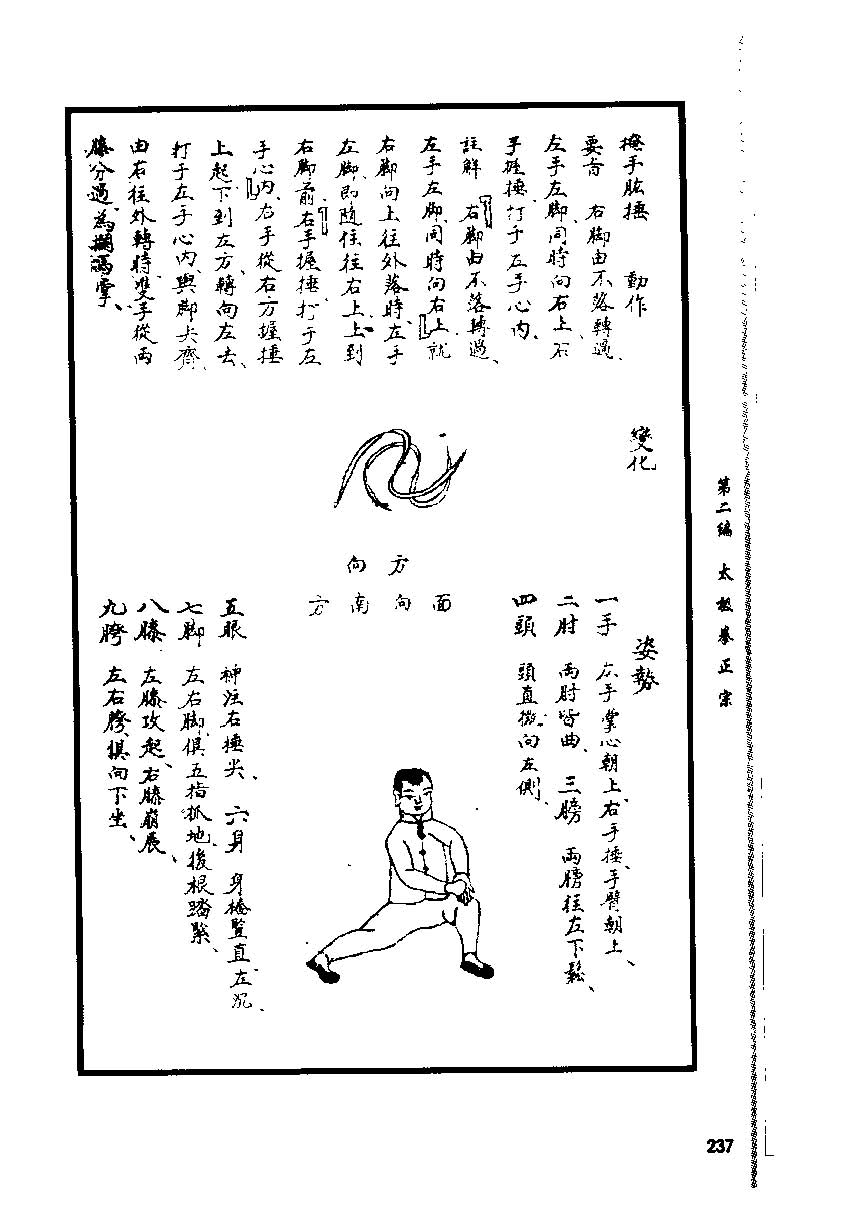 掩手肱捶　動作
要旨　右脚由不落轉過、
左手左脚、同時向右上、右
手握捶、打于左手心内、
註解　右脚由不落轉過、
左手左脚、同時向右上、就
右脚向上往外落時、左手
左脚、即隨住往右上、上到
右脚前、右手握捶、打于左
手心内、右手從右方握捶
上起、下到左方、轉向左去、
打于左手心内、與脚尖齊、
由右往外轉時、雙手從兩
膝分過、為
變化
方向
面向南方
姿勢
一手　左手掌心朝上、右手捶手臂朝上、
二肘　兩肘皆曲、三膀　兩膀往左下鬆、
四頭　頭直微向左側、
五眼　神注右捶尖、六身　身樁豎直、左沉、
七脚　左右脚、俱五指抓地、後根踏緊、
八膝　左膝攻起、右膝崩展、
九胯　左右胯、俱向下坐、
第二編　太極拳正宗
237